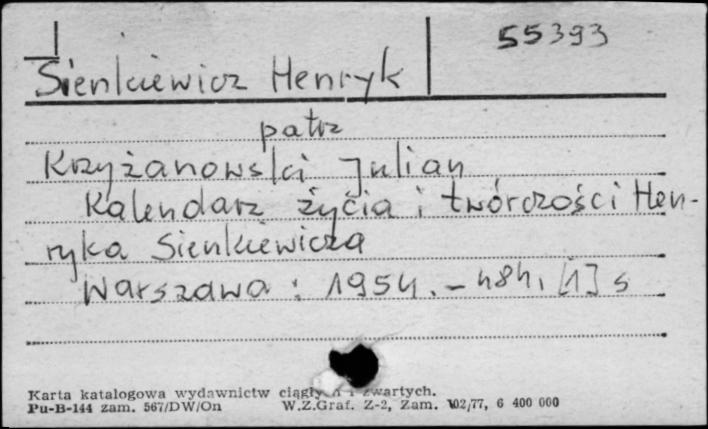 55393
Sienkiewicz Henryk
patrz
Krzyżanowski Julian
Kalendarz życia i twórczości Hen-
ryka Sienkiewicza
Warszawa : 1954. – 484, [1] s
Karta katalogowa wydawnictw ciągłych i zwartych.
Pu-B-144 zam. 567/DW/On W.Z.Graf. Z-2, Zam. 102/77, 6 400 000